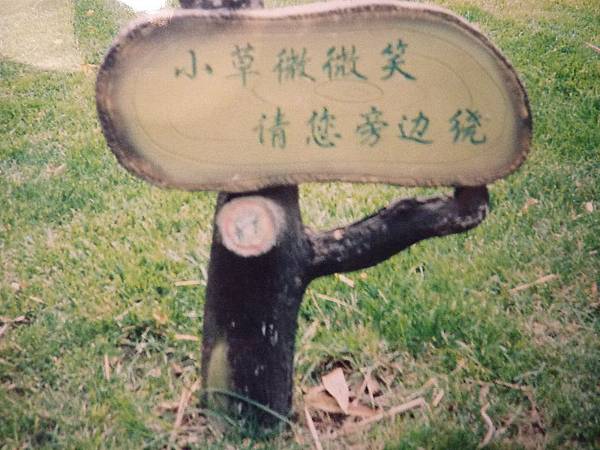 小草微微笑
请您旁边绕